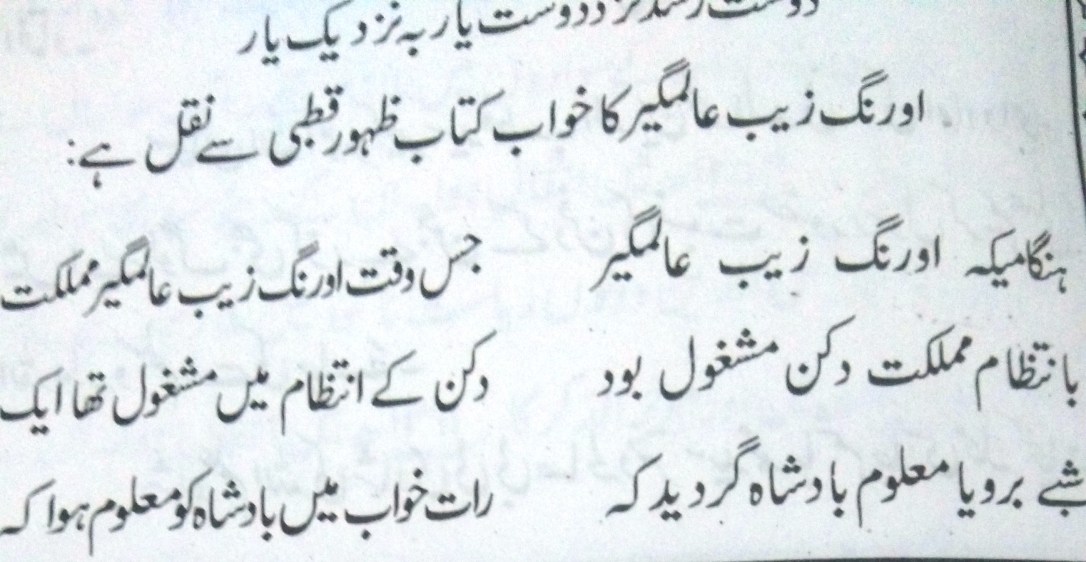 دوست رسد نزد دوست یار بہ نزدیک یار
اورنگ زیب عالمگیر کا خواب کتاب ظہور قطبی سے نقل ہے:
ہنگامیکہ اورنگ زیب عالمگیر
بانتظام مملکت دکن مشغول بود
شبے برویا معلوم بادشاہ گردید کہ
جس وقت اورنگ زیب عالمگیر مملکت
دکن کے انتظام میں مشغول تھا ایک
رات خواب میں بادشاہ کو معلوم ہوا کہ